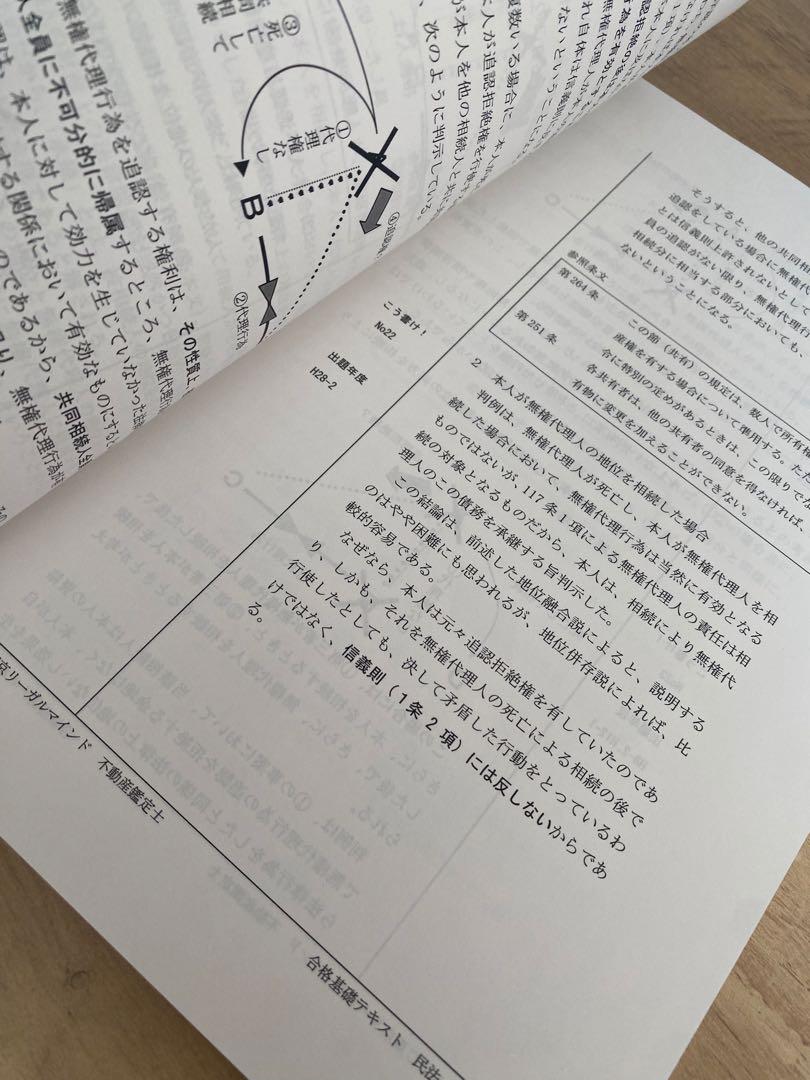 ③死亡して
相続
①代理権なし
B
②代理行為
複数いる場合に、本人
本人が追認拒絶権を行使
が本人を他の相続人と共に
、次のように判示している。
無権代理行為を追認する権利は、その性質上
人全員に不可分的に帰属するところ、無権代理行
、本人に対して効力を生じていなかった法
する関係において有効なものにする
のであるから、共同相続人全
、無権代理行為が
そうすると、他の共同相
追認をしている場合に無権代
とは信義則上許されないとして
員の追認がない限り、無権代理行
相続分に相当する部分においても、
ないということになる。
参照条文
第264条
この節（共有）の規定は、数人で所有権
産権を有する場合について準用する。ただ
合に特別の定めがあるときは、この限りでな
第251条
各共有者は、他の共有者の同意を得なければ、
有物に変更を加えることができない。
こう書け！
No22
出題年度
H28-2
2 本人が無権代理人の地位を相続した場合
判例は、無権代理人が死亡し、本人が無権代理人を相
続した場合において、無権代理行為は当然に有効となる
ものではないが、117条1項による無権代理人の責任は相
続の対象となるものだから、本人は、相続により無権代
理人のこの債務を承継する旨判示した。
この結論は、前述した地位融合説によると、説明する
のはやや困難にも思われるが、地位併存説によれば、比
較的容易である。
なぜなら、本人は元々追認拒絶権を有していたのであ
り、しかも、それを無権代理人の死亡による相続の後で
行使したとしても、決して矛盾した行動をとっているわ
けではなく、信義則（1条2項）には反しないからであ
る。
京リーガルマインド 不動産鑑定士
合格基礎テキスト 民法